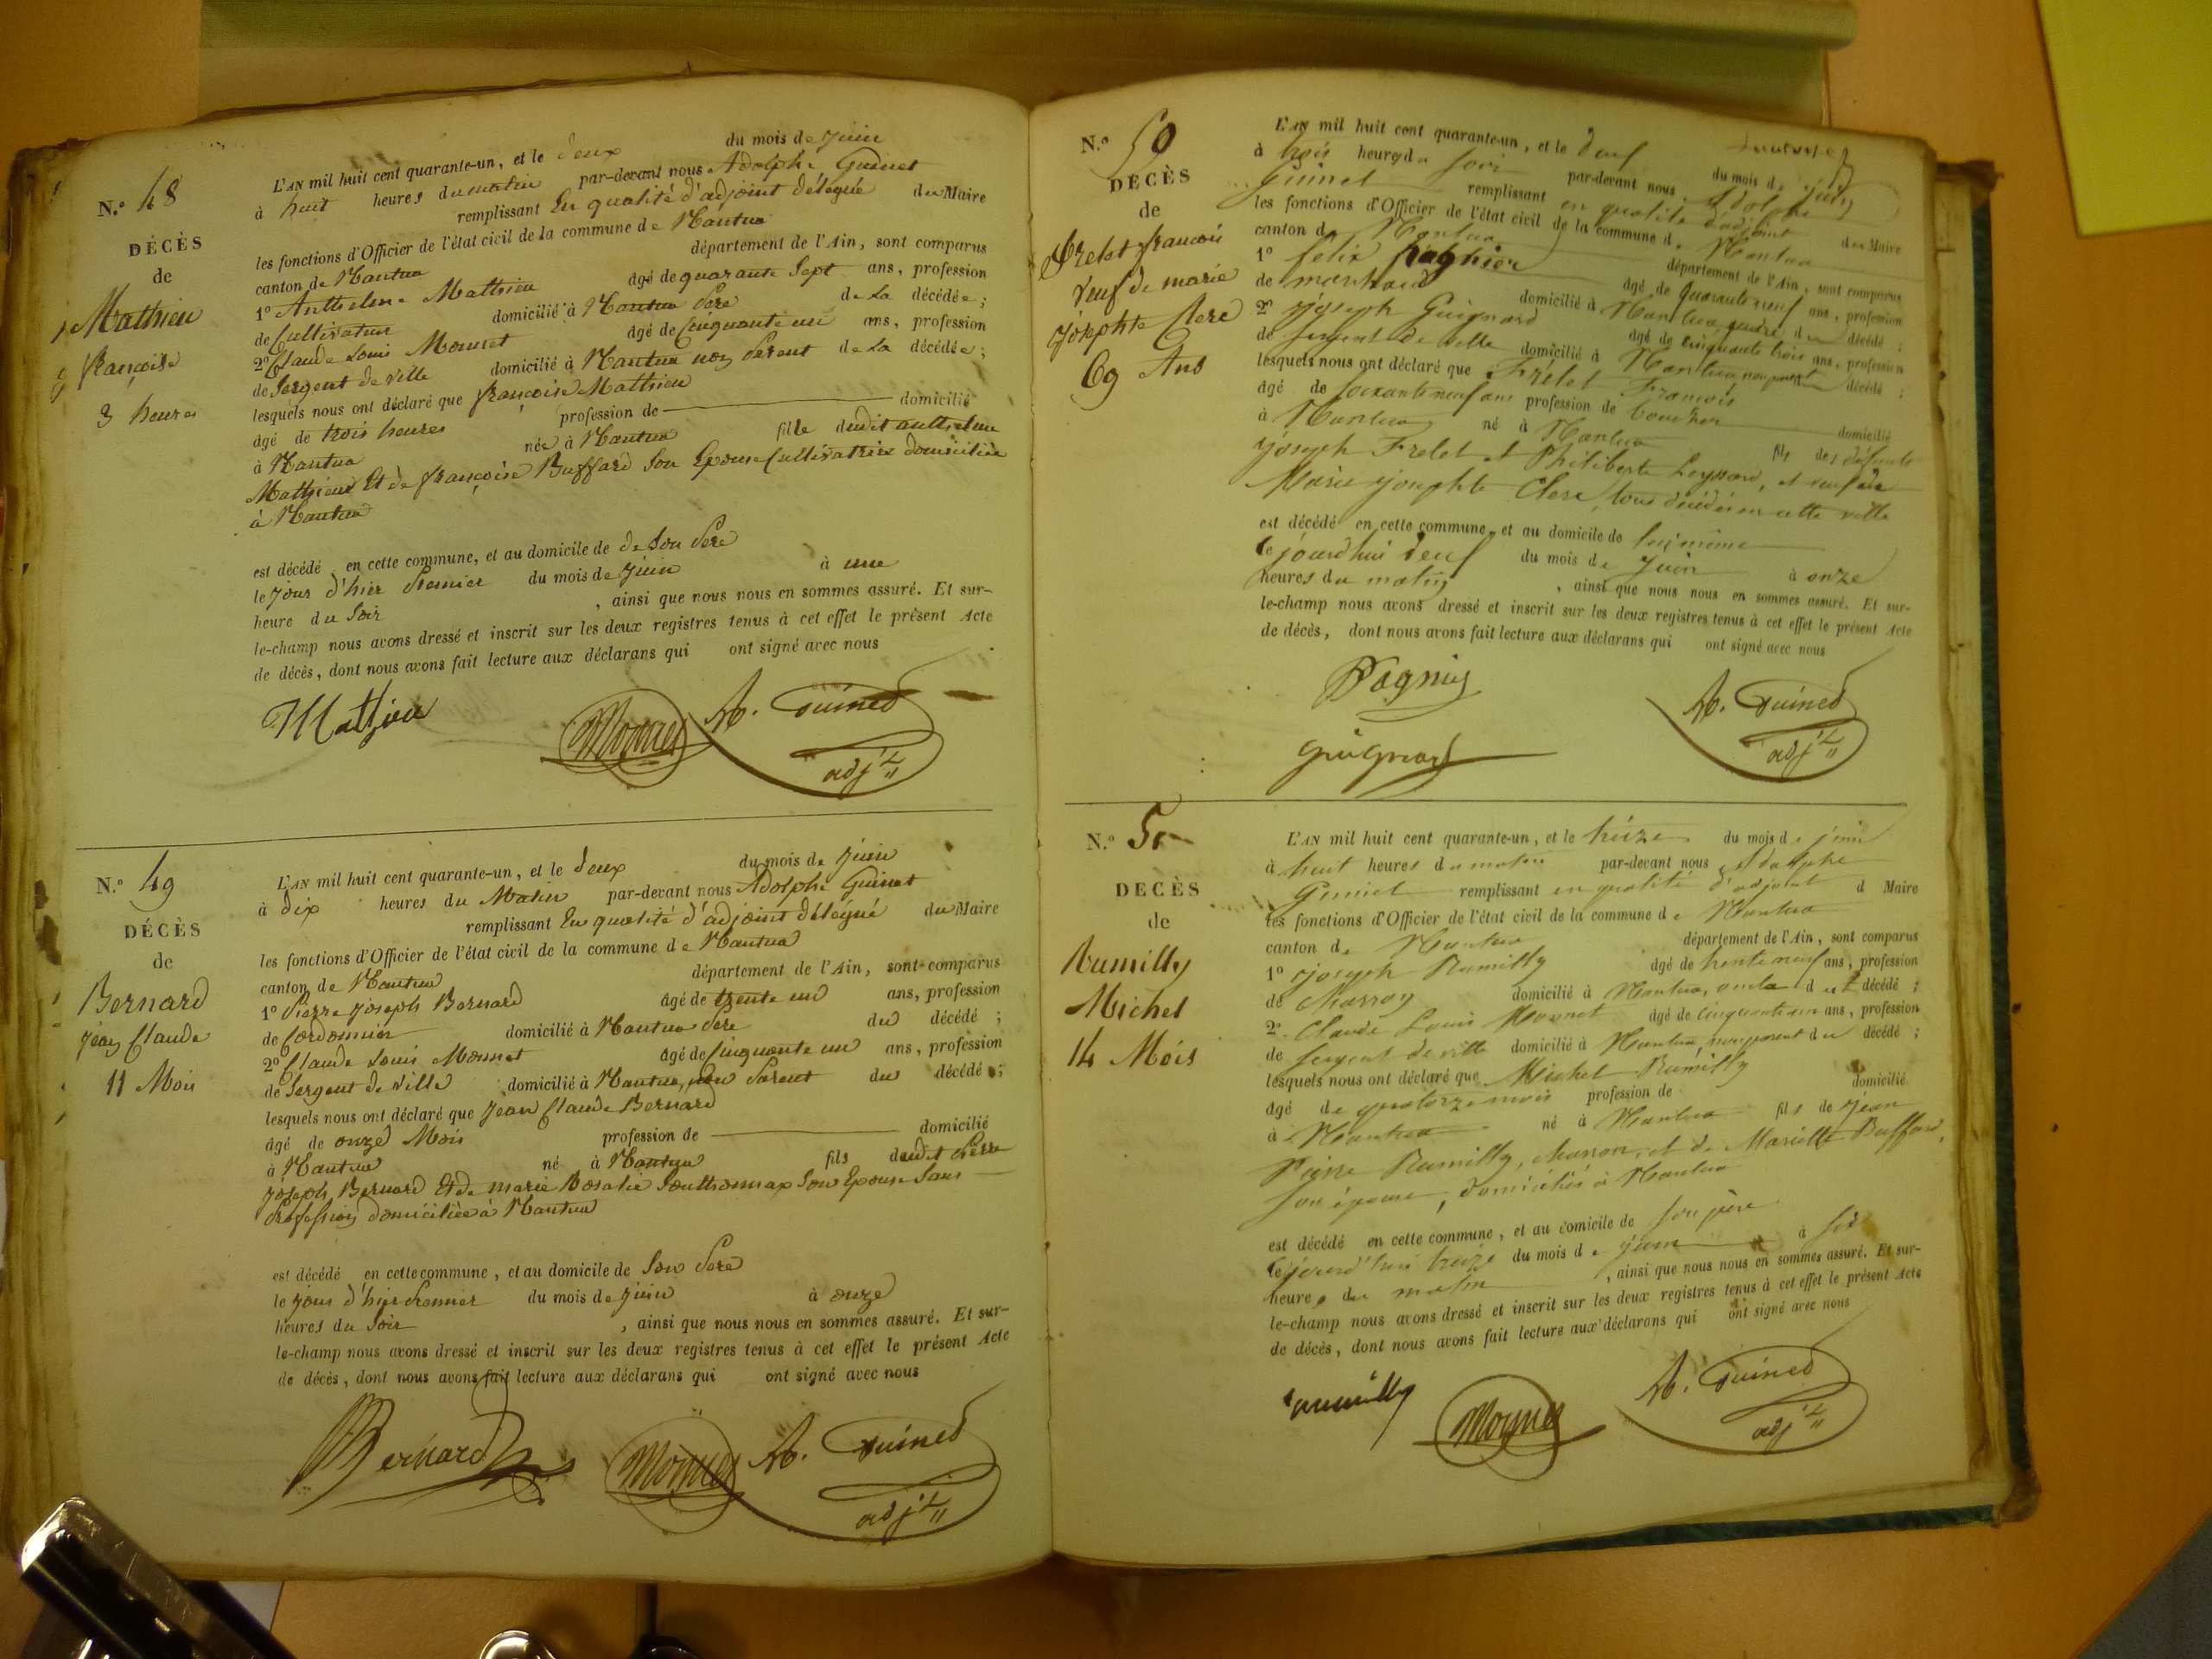 N.º 48
DÉCÈS
de
Mathieu
françoise
3 heures
L'AN mil huit cent quarante-un, et le deux du mois de juin
à huit heures du matin par-devant nous Adolphe Guinet
remplissant En qualité d'adjoint délégué du Maire
les fonctions d'Officier de l'état civil de la commune de Nantua
canton de Nantua département de l'Ain, sont comparus
1º Anthelme Mathieu âgé de quarante Sept ans, profession
de Cultivateur domicilié à Nantua Père de La décédée;
2º Claude Louis Monnet âgé de Cinquante un ans, profession
de Sergent de ville domicilié à Nantua non Parent de La décédée;
lesquels nous ont déclaré que françoise Mathieu
âgé de trois heures profession de domicilié
à Nantua née à Nantua fille dudit anthelme
Mathieu Et de françoise Buffard Son Epouse Cultivatrice domiciliée
à Nantua
est décédé en cette commune, et au domicile de de Son Père
le jour d'hier Premier du mois de juin à une
heure du Soir , ainsi que nous nous en sommes assuré. Et sur-
le-champ nous avons dressé et inscrit sur les deux registres tenus à cet effet le présent Acte
de décès, dont nous avons fait lecture aux déclarans qui ont signé avec nous
Mathieu Monnet A. Guinet
adj.t
N.º 49
DÉCÈS
de
Bernard
Jean Claude
11 Mois
L'AN mil huit cent quarante-un, et le deux du mois de juin
à dix heures du Matin par-devant nous Adolphe Guinet
remplissant En qualité d'adjoint délégué du Maire
les fonctions d'Officier de l'état civil de la commune de Nantua
canton de Nantua département de l'Ain, sont comparus
1º Pierre Joseph Bernard âgé de trente un ans, profession
de Cordonnier domicilié à Nantua Père du décédé ;
2º Claude Louis Monnet âgé de Cinquante un ans, profession
de Sergent de ville domicilié à Nantua, non Parent du décédé ;
lesquels nous ont déclaré que Jean Claude Bernard
âgé de onze Mois profession de domicilié
à Nantua né à Nantua fils dudit Pierre
Joseph Bernard Et de marie Rosalie Southonnax Son Epouse Sans
Profession domiciliée à Nantua
est décédé en cette commune, et au domicile de Son Père
le jour d'hier Premier du mois de juin à onze
heures du Soir , ainsi que nous nous en sommes assuré. Et sur-
le-champ nous avons dressé et inscrit sur les deux registres tenus à cet effet le présent Acte
de décès, dont nous avons fait lecture aux déclarans qui ont signé avec nous
Bernard Monnet A. Guinet
adj.t
N.º 50
DÉCÈS
de
Frelet françois
veuf de marie
Jôsephte Clerc
69 Ans
L'AN mil huit cent quarante-un, et le deuf du mois de juin
à trois heures du soir par-devant nous Adolphe
Guinet remplissant en qualité d'adjoint du Maire
les fonctions d'Officier de l'état civil de la commune de Nantua
canton de Nantua département de l'Ain, sont comparus
1º felix Pagnier âgé de quarante neuf ans, profession
de marchand domicilié à Nantua, gendre du décédé ;
2º Joseph Guignard âgé de cinquante trois ans, profession
de sergent de ville domicilié à Nantua non parent du décédé ;
lesquels nous ont déclaré que Frelet François
âgé de soixante neuf ans profession de boucher domicilié
à Nantua né à Nantua fils des défunts
Joseph Frelet et Philiberte Leyssard, et veuf de
Marie josephte Clerc, tous décédés en cette ville
est décédé en cette commune, et au domicile de lui même
le jourd'hui deuf du mois de juin à onze
heures du matin , ainsi que nous nous en sommes assuré. Et sur-
le-champ nous avons dressé et inscrit sur les deux registres tenus à cet effet le présent Acte
de décès, dont nous avons fait lecture aux déclarans qui ont signé avec nous
Pagnier
Guignard
A. Guinet
adj.t
N.º 51
DECÈS
de
Rumilly
Michel
14 Mois
L'AN mil huit cent quarante-un, et le treize du mois de juin
à huit heures du matin par-devant nous Adolphe
Guinet remplissant en qualité d'adjoint d Maire
les fonctions d'Officier de l'état civil de la commune de Nantua
canton de Nantua département de l'Ain, sont comparus
1º Joseph Rumilly âgé de trente neuf ans, profession
de Masson domicilié à Nantua, oncle du décédé ;
2º Claude Louis Monnet âgé de cinquante un ans, profession
de sergent de ville domicilié à Nantua, non parent du décédé ;
lesquels nous ont déclaré que Michel Rumilly
âgé de quatorze mois profession de domicilié
à Nantua né à Nantua fils de Jean
Pierre Rumilly, Masson, et de Mariette Buffard,
son épouse, domiciliés à Nantua
est décédé en cette commune, et au domicile de son père
le jourd'hui treize du mois de juin à six
heures du matin , ainsi que nous nous en sommes assuré. Et sur-
le-champ nous avons dressé et inscrit sur les deux registres tenus à cet effet le présent Acte
de décès, dont nous avons fait lecture aux déclarans qui ont signé avec nous
rumilly Monnet A. Guinet
adj.t